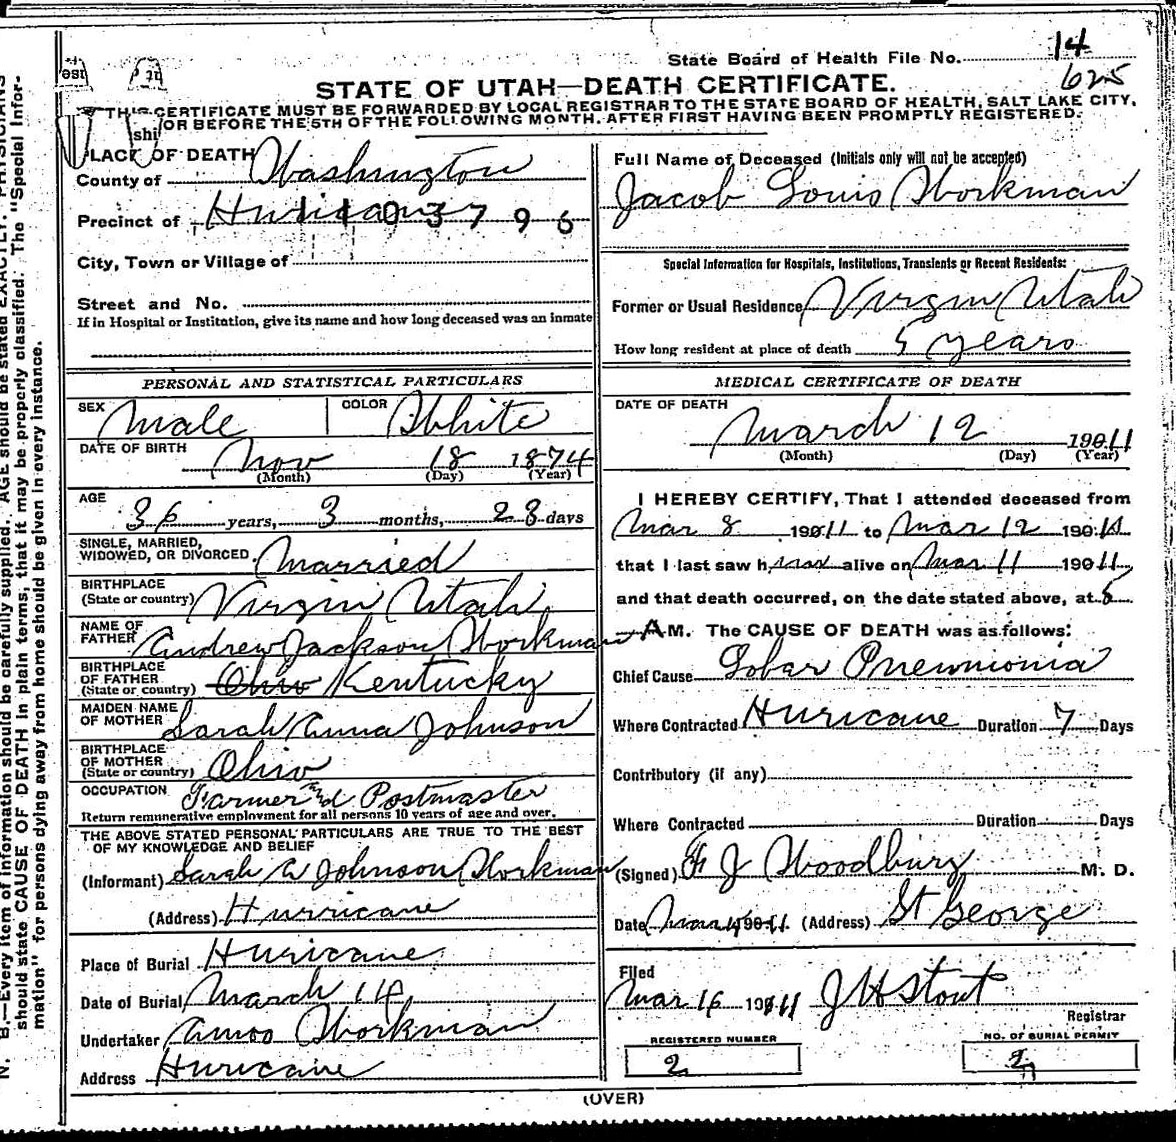 State Board of Health File No. 14
625
STATE OF UTAH—DEATH CERTIFICATE.
THIS CERTIFICATE MUST BE FORWARDED BY LOCAL REGISTRAR TO THE STATE BOARD OF HEALTH, SALT LAKE CITY,
OR BEFORE THE 5TH OF THE FOLLOWING MONTH. AFTER FIRST HAVING BEEN PROMPTLY REGISTERED.
shi
PLACE OF DEATH
County of Washington
Precinct of Hurricane 1103796
City, Town or Village of
Street and No.
If in Hospital or Institution, give its name and how long deceased was an inmate
Full Name of Deceased (Initials only will not be accepted)
Jacob Louis Workman
Special Information for Hospitals, Institutions, Transients or Recent Residents:
Former or Usual Residence Virgin Utah
How long resident at place of death 5 years
PERSONAL AND STATISTICAL PARTICULARS
SEX Male COLOR White
DATE OF BIRTH Nov 18 1874
(Month) (Day) (Year)
AGE
36 years, 3 months, 23 days
SINGLE, MARRIED,
WIDOWED, OR DIVORCED Married
BIRTHPLACE
(State or country) Virgin Utah
NAME OF
FATHER Andrew Jackson Workman
BIRTHPLACE
OF FATHER
(State or country) Ohio Kentucky
MAIDEN NAME
OF MOTHER Sarah Anna Johnson
BIRTHPLACE
OF MOTHER
(State or country) Ohio
OCCUPATION Farmer and Postmaster
Return remunerative employment for all persons 10 years of age and over.
THE ABOVE STATED PERSONAL PARTICULARS ARE TRUE TO THE BEST
OF MY KNOWLEDGE AND BELIEF
(Informant) Sarah A Johnson Workman
(Address) Hurricane
Place of Burial Huricane
Date of Burial March 14
Undertaker Amos Workman
Address Huricane
MEDICAL CERTIFICATE OF DEATH
DATE OF DEATH
March 12 1911
(Month) (Day) (Year)
I HEREBY CERTIFY, That I attended deceased from
Mar 8 1911 to Mar 12 1911
that I last saw him alive on Mar 11 1911,
and that death occurred, on the date stated above, at 5
AM. The CAUSE OF DEATH was as follows:
Chief Cause Lobar Pnewmonia
Where Contracted Huricane Duration 7 Days
Contributory (if any)
Where Contracted Duration Days
(Signed) F J Woodbury M. D.
Date Mar 1911 (Address) St George
Filed
Mar 16 1911 J H Stout
Registrar
REGISTERED NUMBER
2
NO. OF BURIAL PERMIT
2
(OVER)
N. B.—Every item of information should be carefully supplied. AGE should be stated EXACTLY. PHYSICIANS
should state CAUSE OF DEATH in plain terms, that it may be properly classified. The "Special Infor-
mation" for persons dying away from home should be given in every instance.